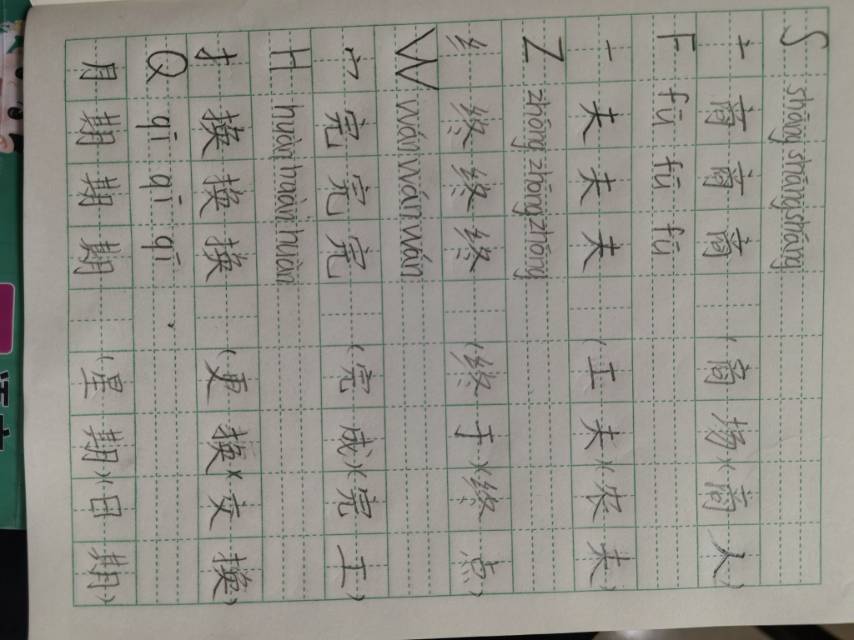 S shāng shāng shāng
亠 商 商 商 (商场)(商人)
F fū fū fū
一 夫 夫 夫 (工夫)(农夫)
Z zhōng zhōng zhōng
纟 终 终 终 (终于)(终点)
W wán wán wán
宀 完 完 完 (完成)(完工)
H huàn huàn huàn
扌 换 换 换 (更换)(交换)
Q qī qī qī
月 期 期 期 (星期)(日期)